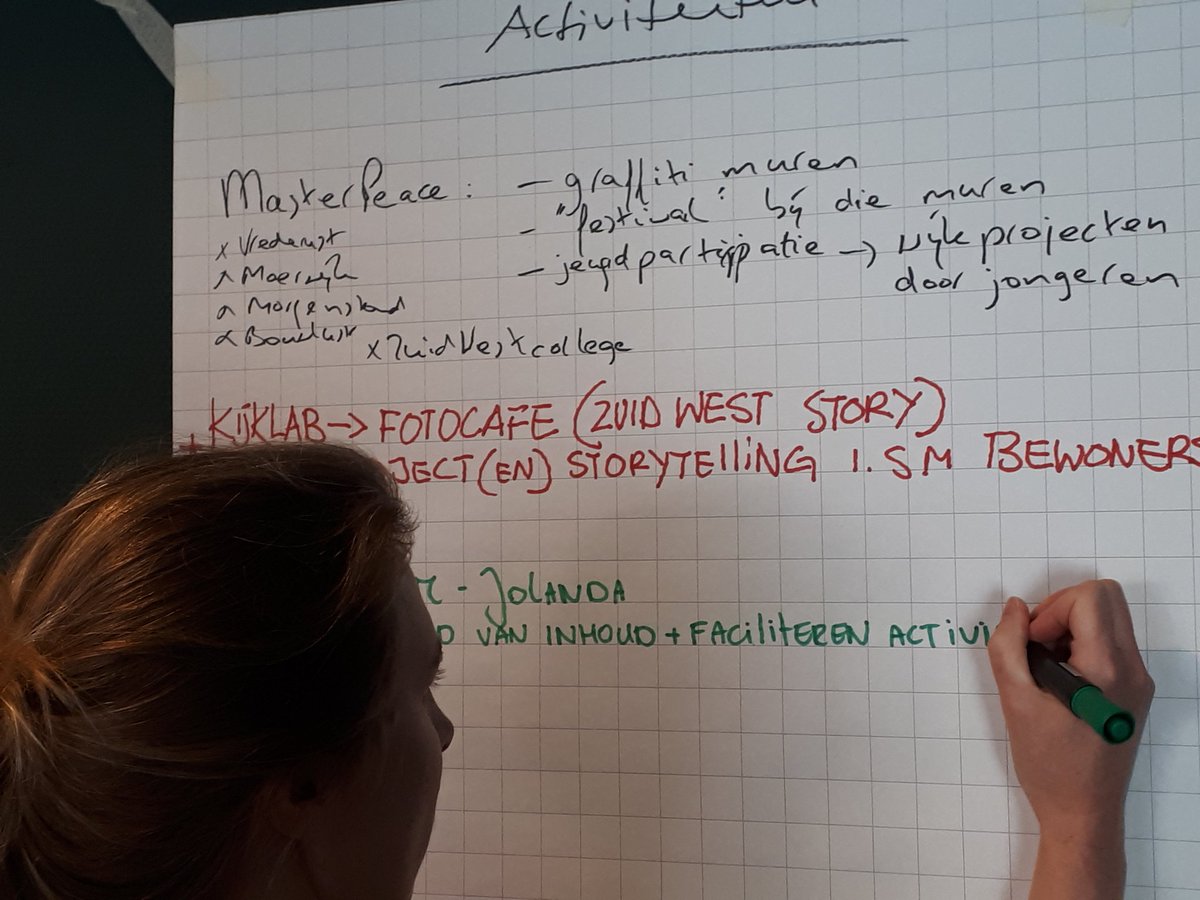 Activiteiten
MasterPeace : - graffiti muren
- "festival" bij die muren
- jeugdpartijpatie → wijkprojecten
door jongeren
x Vrederust
x Moerwijk
x Morgenstond
x Bouwlust x ZuidWestcollege
+ KIJKLAB → FOTOCAFE (ZUID WEST STORY)
JECT(EN) STORYTELLING I.SM BEWONERS
- JOLANDA
D VAN INHOUD + FACILITEREN ACTIVI